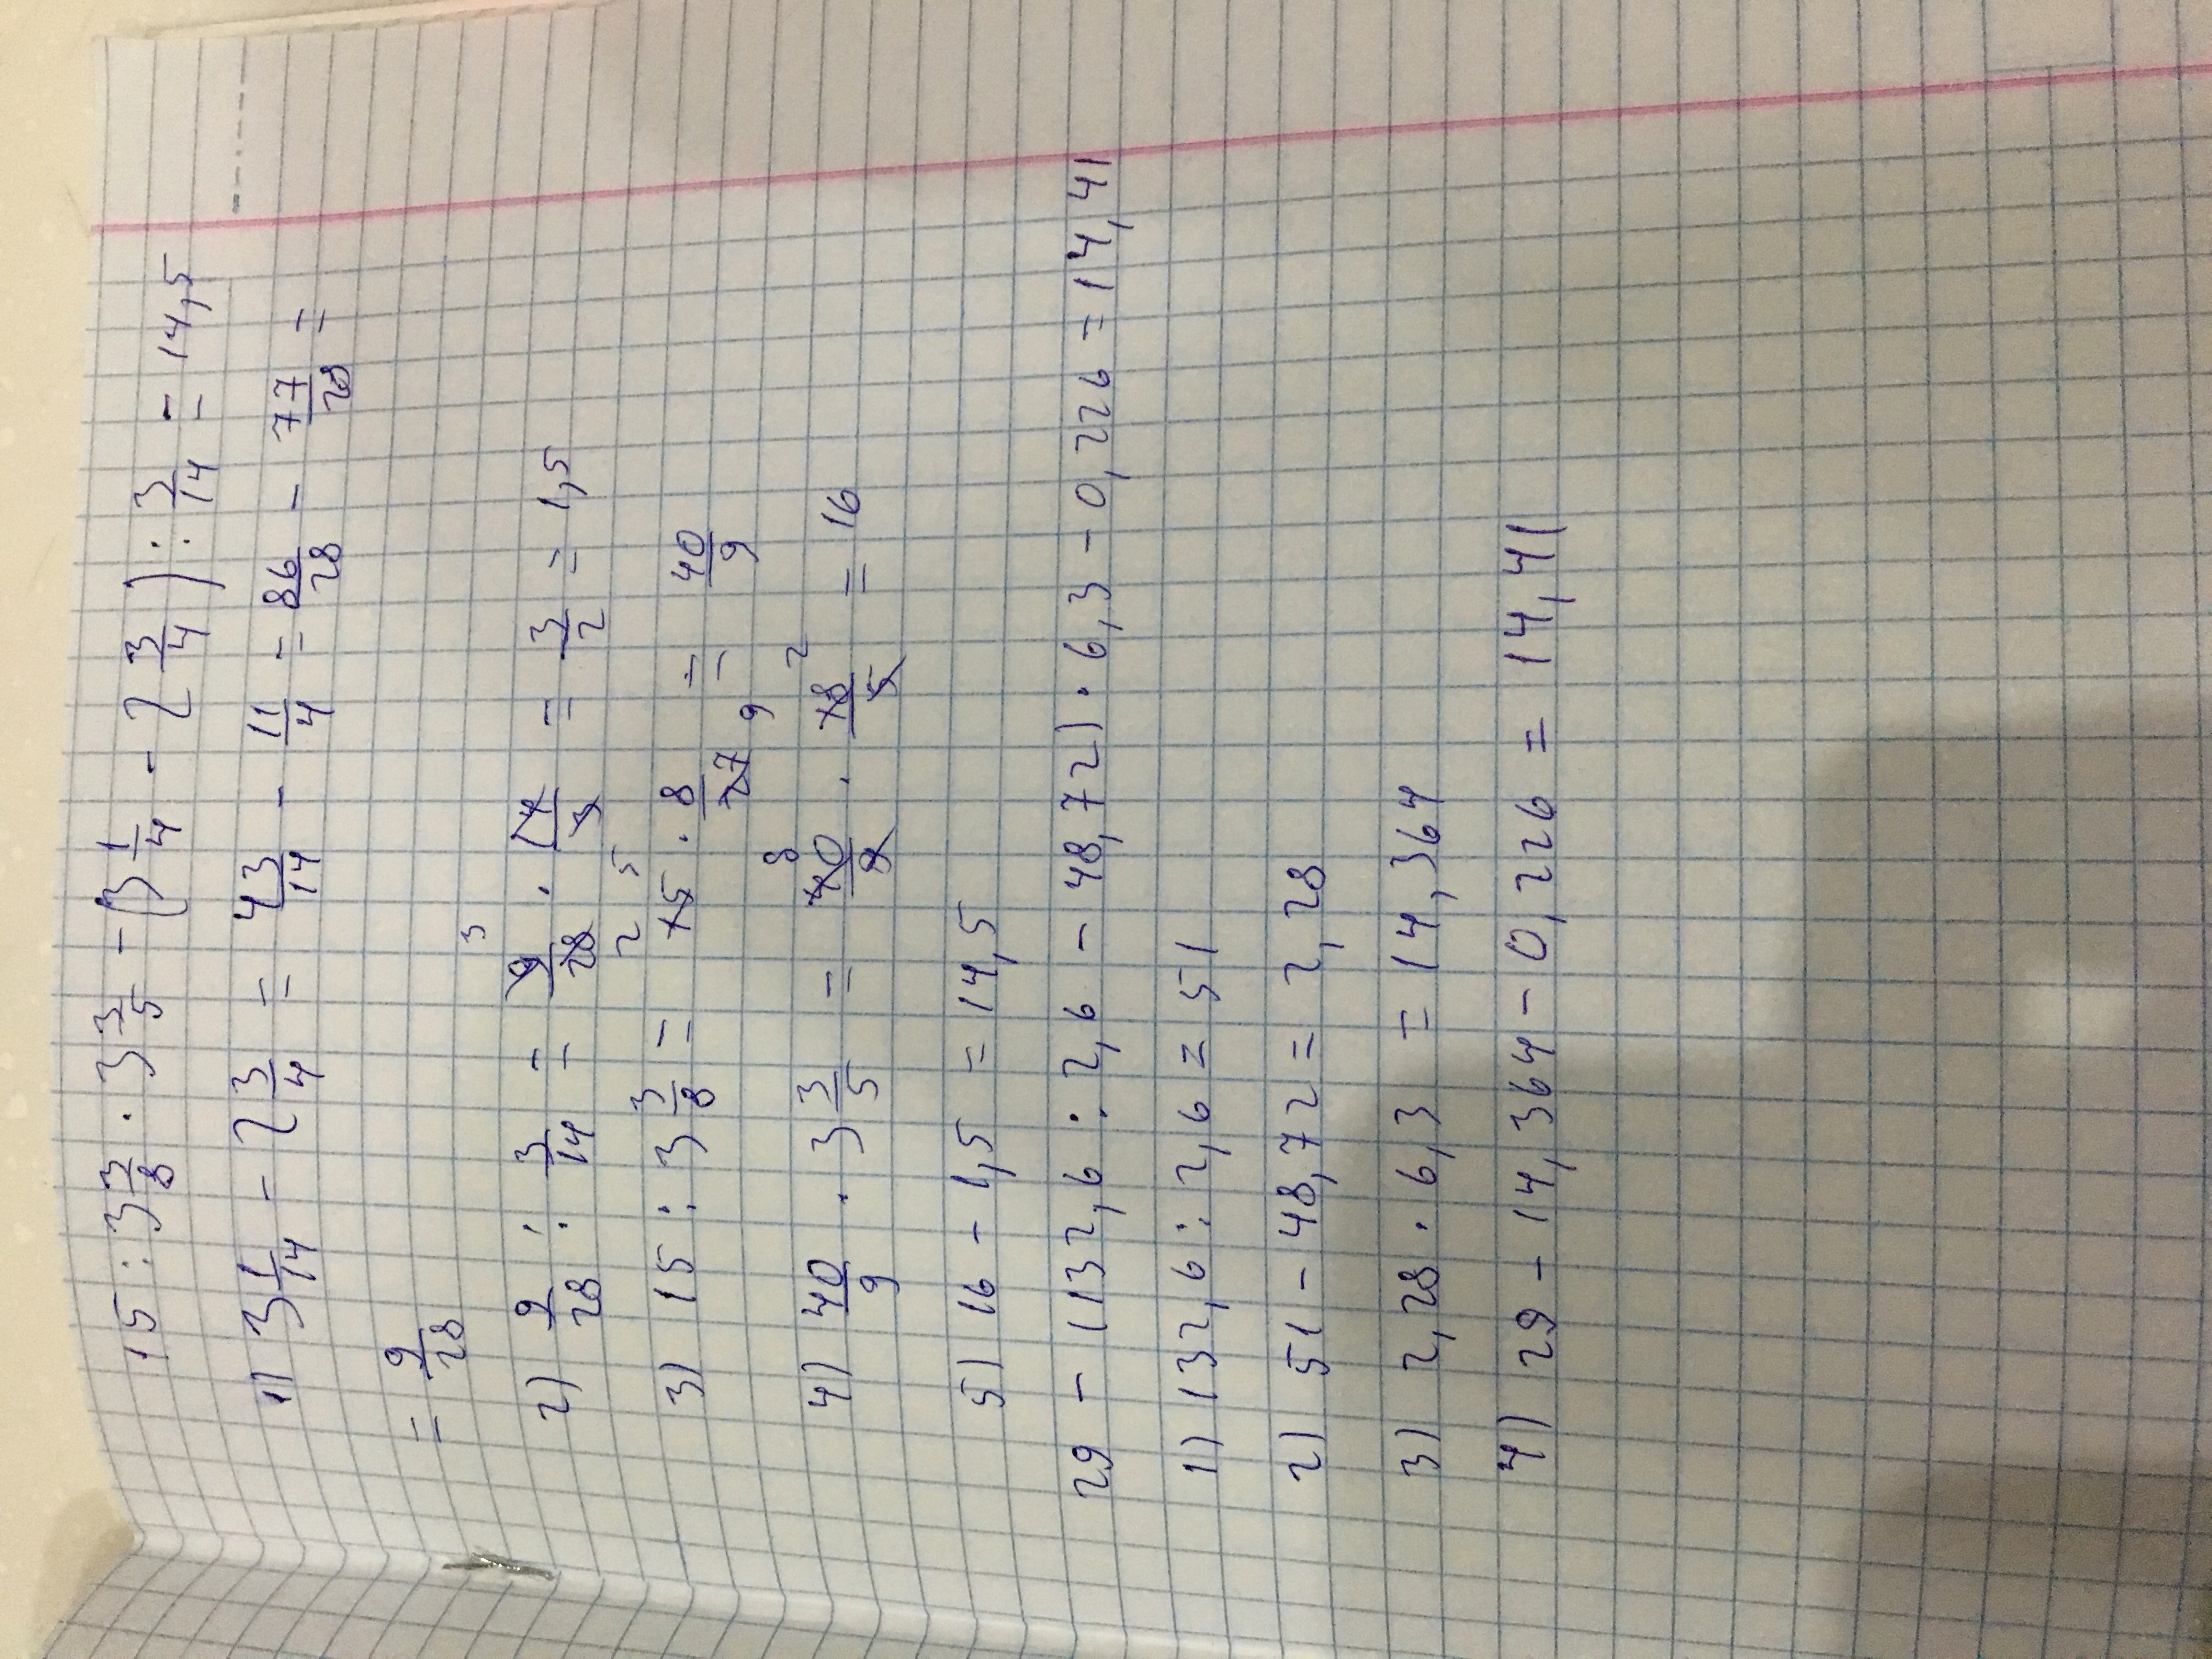 15 : 3 3/8 · 3 3/5 - (3 1/4 - 2 3/4) : 3/14 = 14,5
1) 3 1/14 - 2 3/4 = 43/14 - 11/4 = 86/28 - 77/28 =
= 9/28
2) 9/28 : 3/14 = 9/28 · 14/3 = 3/2 = 1,5
3) 15 : 3 3/8 = 15 · 8/27 = 40/9
4) 40/9 · 3 3/5 = 40/9 · 18/5 = 16
5) 16 - 1,5 = 14,5
29 - (132,6 : 2,6 - 48,72) · 6,3 - 0,226 = 14,41
1) 132,6 : 2,6 = 51
2) 51 - 48,72 = 2,28
3) 2,28 · 6,3 = 14,364
4) 29 - 14,364 - 0,226 = 14,41